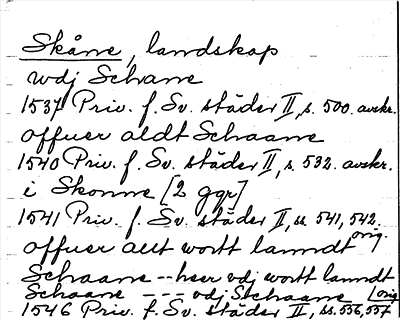 Skåne, landskap
udj Schane
1537 Priv. f. Sv. städer II, s. 500. avskr.
offuer aldt Schaane
1540 Priv. f. Sv. städer II, s. 532. avskr.
i Skonne [2 ggr]
1541 Priv. f. Sv. städer II, ss 541, 542. orig.
offuer alt wortt lanndt
Schaane -- heer vdj wortt lanndt
Schaane - - - vdj Schaane [orig
1546 Priv. f. Sv. städer II, ss. 556, 557